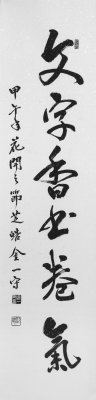 文字香书卷氣
甲午年花開之節芝皓金一守